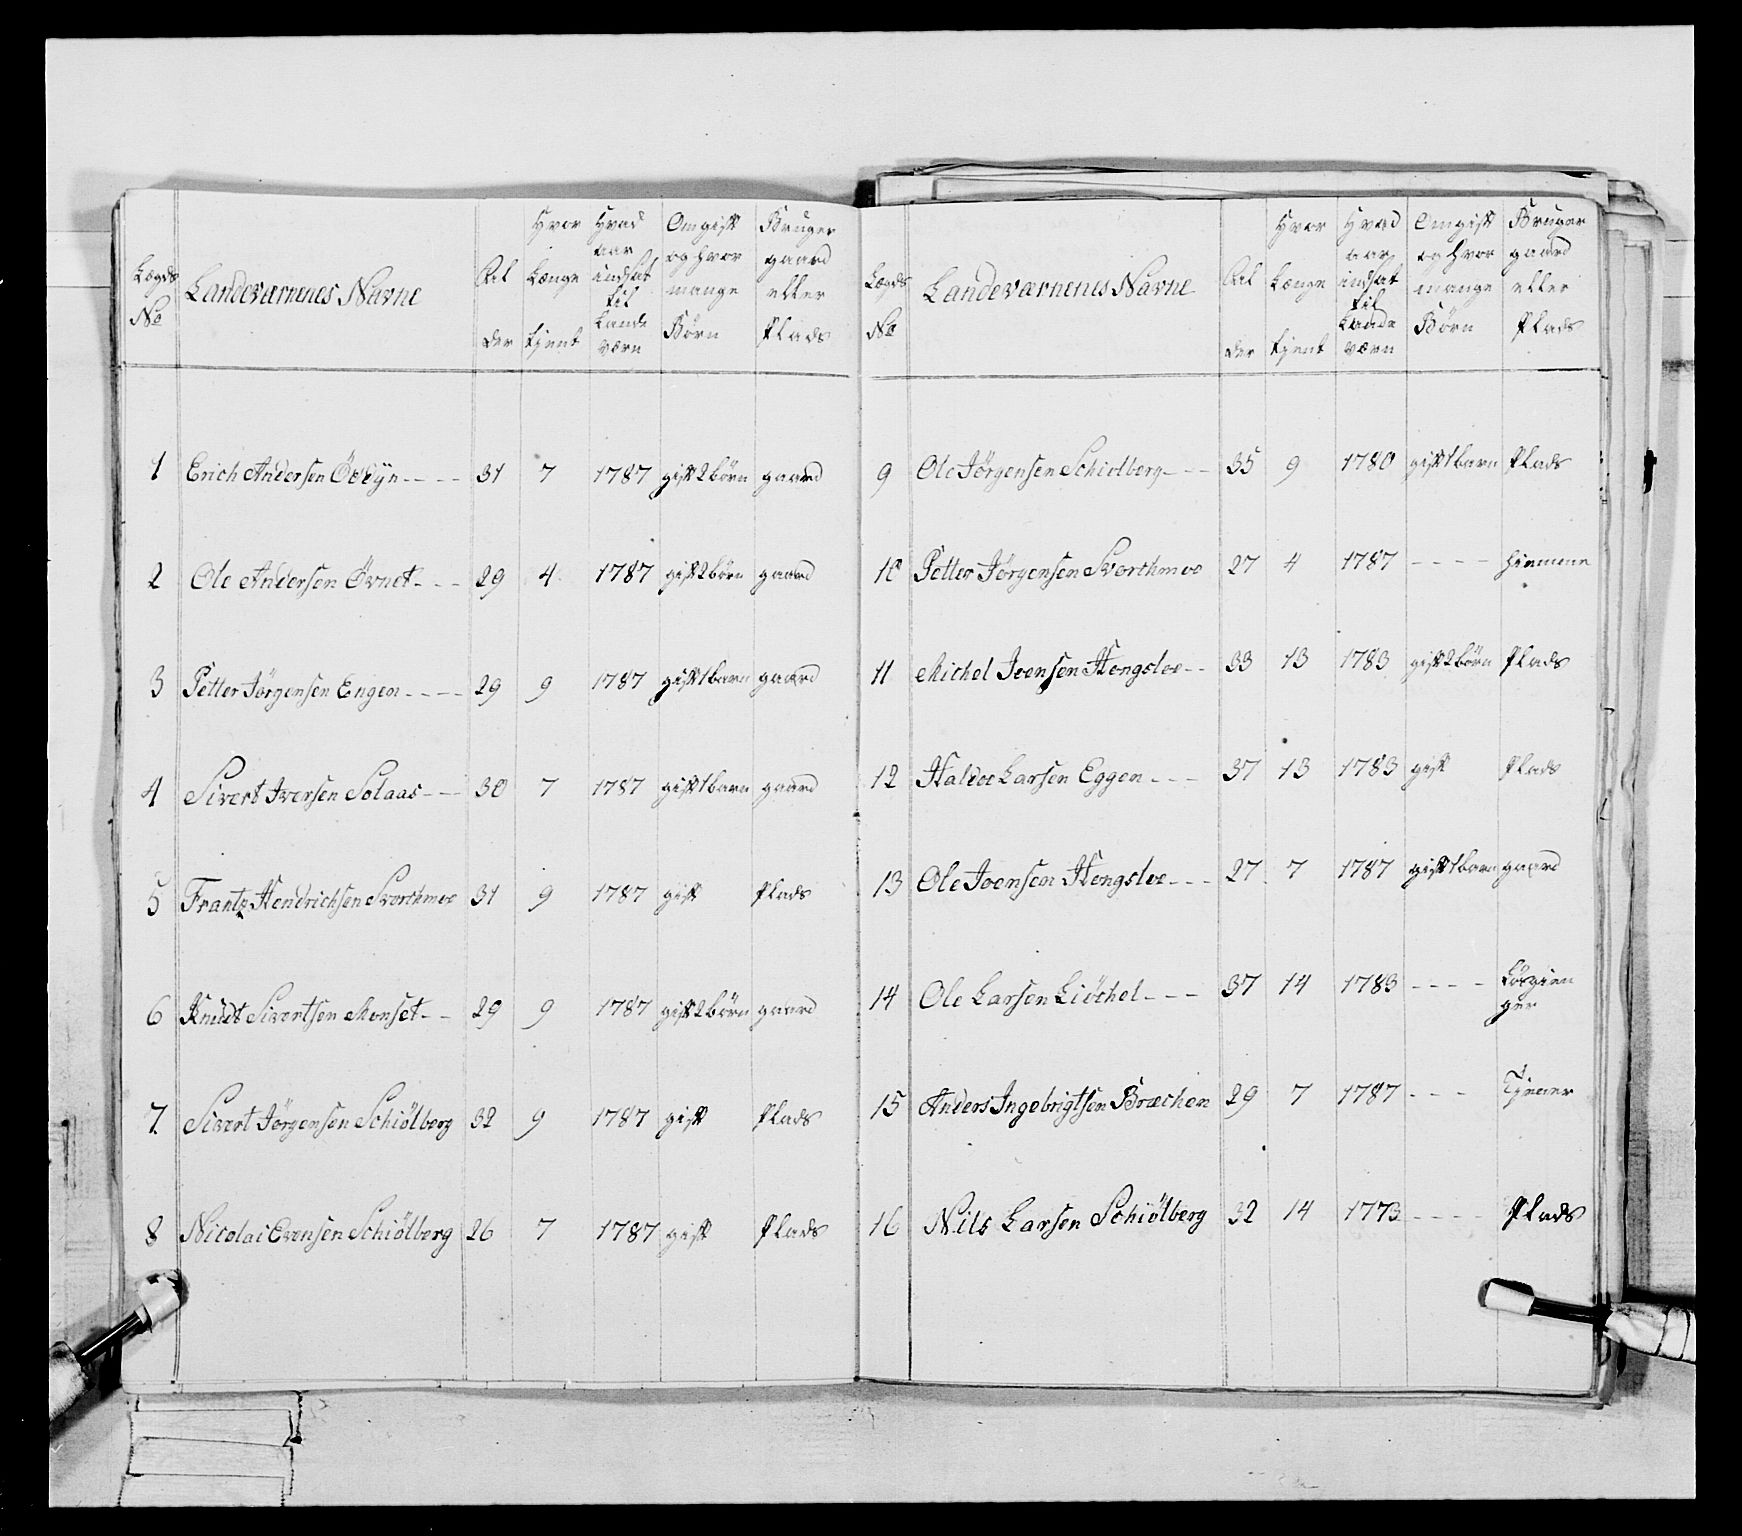 Lægds No | Landeværnenes Navne | Alder | Hvor Længe tjent | Hvad aar indsat til Lande værn | Om gift og hvor mange Börn | Bruger gaard eller Plads
1 Erich Andersen - - - - 31 7 1787 gift 2 börn gaard
2 Ole Andersen Övnet - - - 29 4 1787 gift 2 börn gaard
3 Petter Jörgensen Engen - - - - 29 9 1787 gift 1 barn gaard
4 Sivert Iversen Solaas - - - 30 7 1787 gift 1 barn gaard
5 Frantz Hendrichsen Svorthmoe 31 9 1787 gift Plads
6 Knudt Sivertsen Monset - - 29 9 1787 gift 2 börn gaard
7. Sivert Jörgensen Schiölberg 32 9 1787 gift Plads
8 Nicolai Evensen Schiölberg 26 7 1787 gift Plads
Lægds No | Landeværnenes Navne | Alder | Hvor Længe tjent | Hvad aar indsat til Lande værn | Om gift og hvor mange Börn | Bruger gaard eller Plads
9 Ole Jörgensen Schiolberg - - - 35 9 1780 gift 1 barn Plads
10 Petter Jörgensen Svorthmoe 27 4 1787 - - - - hiemme
11 Michel Joensen Hongsloe - - 33 13 1783 gift 2 börn Plads
12 Haldoe Larsen Eggen - - - 37 13 1783 gift Plads
13 Ole Joensen Hongsloe - - - 27 7 1787 gift 1 barn gaard
14 Ole Larsen Liöchel - - - 37 14 1783 - - - - Løsgien
ger
15 Anders Ingebrigtsen Bræchen 29 7 1787 - - - Tjener
16 Nils Larsen Schiölberg 32 14 1773 - - - - Plads